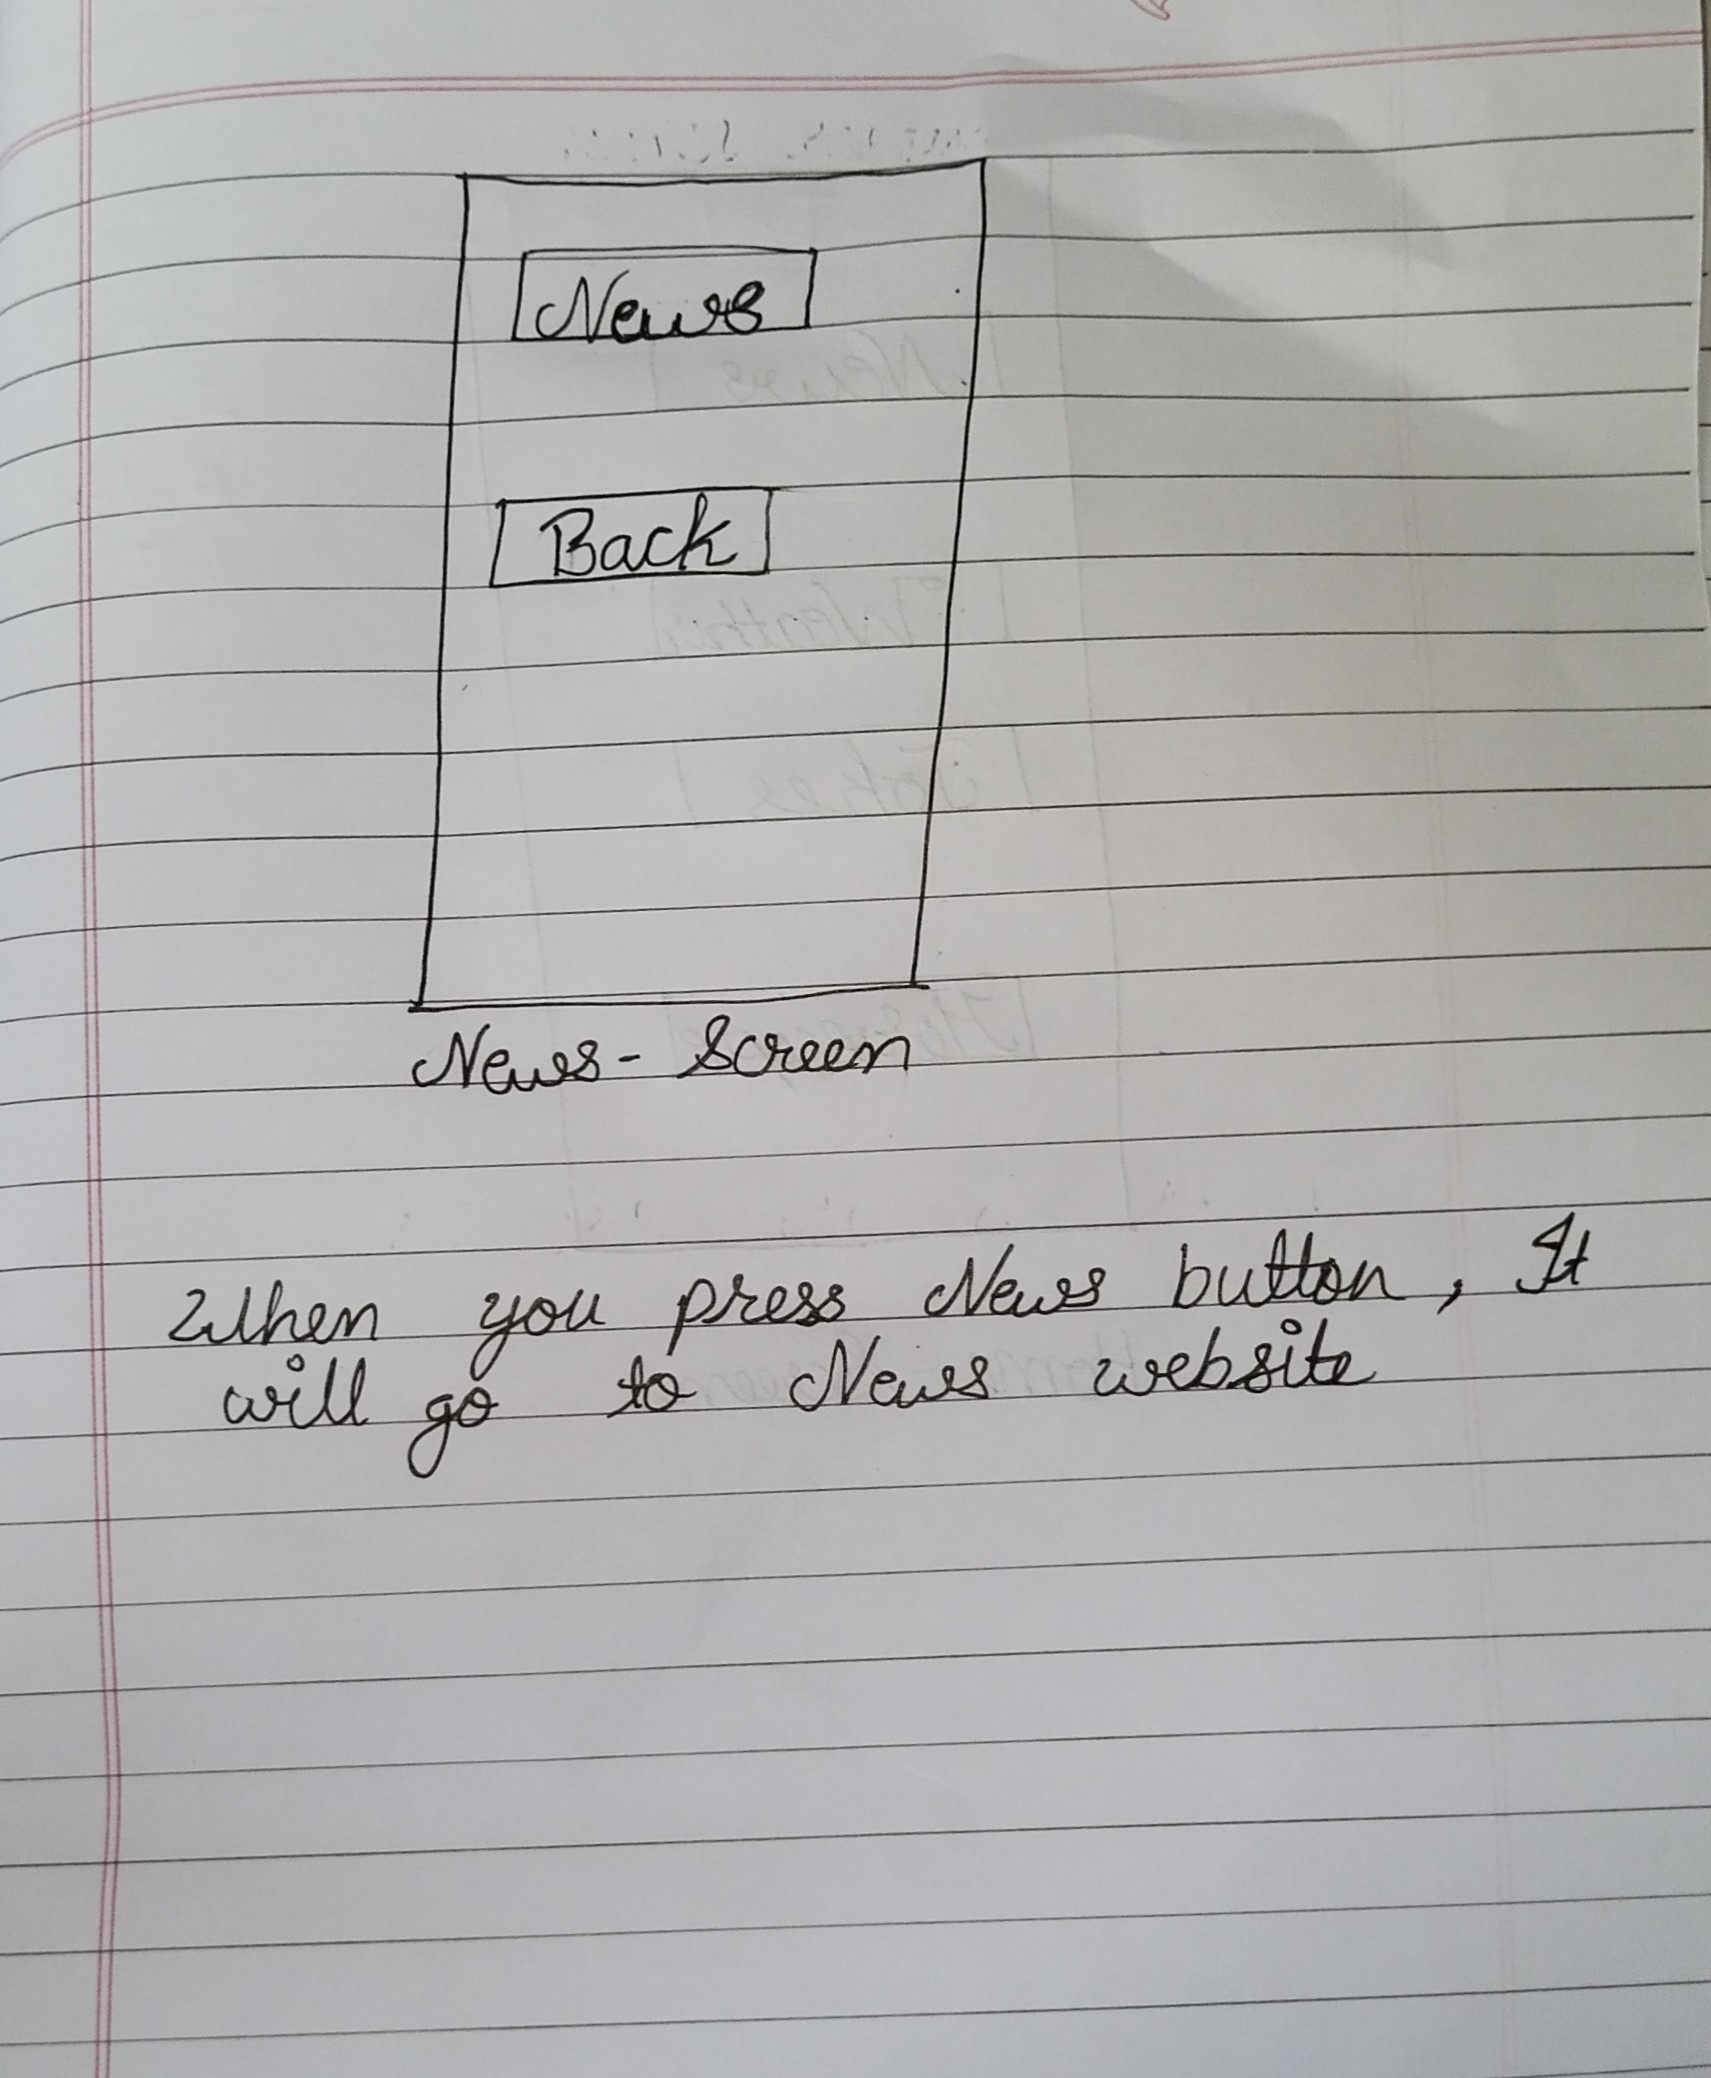 News
Back
News- Screen
When you press News button, It
will go to News website